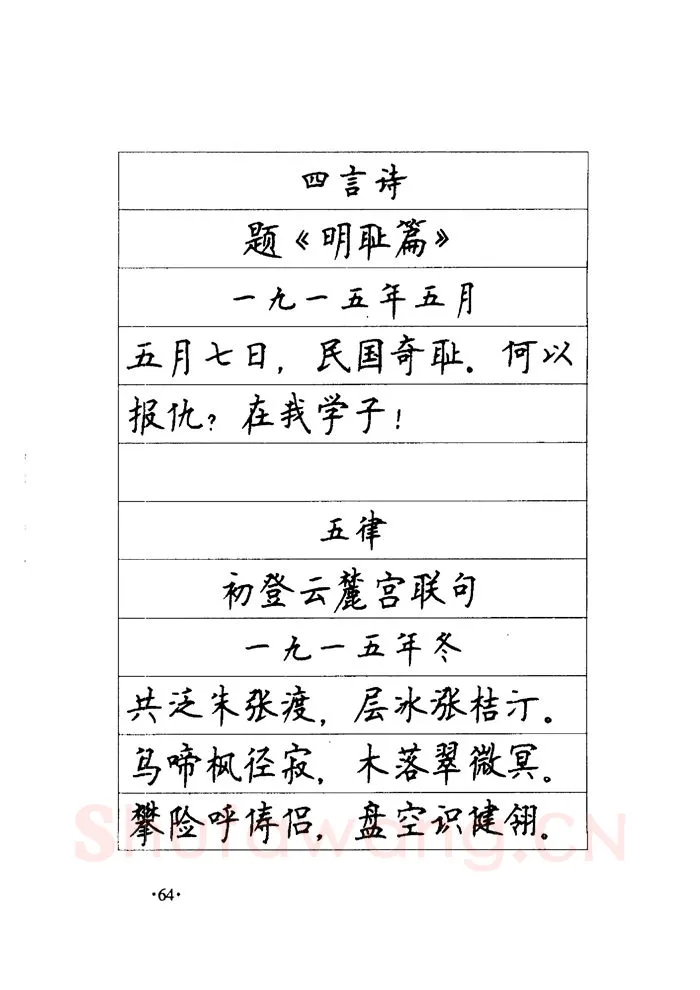 四言诗
题《明耻篇》
一九一五年五月
五月七日，民国奇耻。何以
报仇？在我学子！
五律
初登云麓宫联句
一九一五年冬
共泛朱张渡，层冰涨桔汀。
鸟啼枫径寂，木落翠微冥。
攀险呼俦侣，盘空识健翎。
Shufawang.CN
·64·